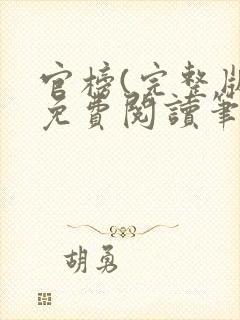 官榜(完整版
免費閱讀筆
胡勇